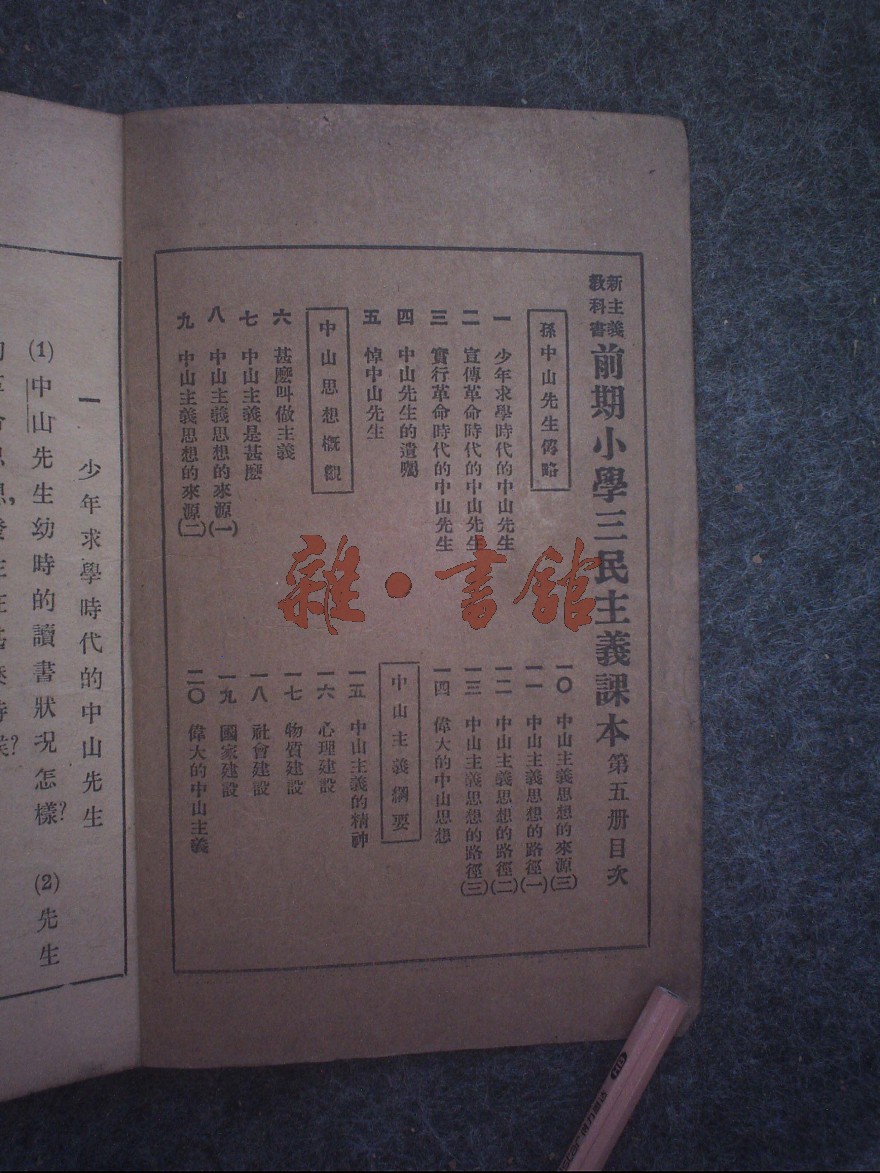 新主義
教科書
前期小學三民主義課本 第五册目次
孫中山先生傳略
一 少年求學時代的中山先生
二 宣傳革命時代的中山先生
三 實行革命時代的中山先生
四 中山先生的遺囑
五 悼中山先生
中山思想概觀
六 甚麽叫做主義
七 中山主義是甚麽
八 中山主義思想的來源(一)
九 中山主義思想的來源(二)
一〇 中山主義思想的來源(三)
一一 中山主義思想的路徑(一)
一二 中山主義思想的路徑(二)
一三 中山主義思想的路徑(三)
一四 偉大的中山思想
中山主義綱要
一五 中山主義的精神
一六 心理建設
一七 物質建設
一八 社會建設
一九 國家建設
二〇 偉大的中山主義
一 少年求學時代的中山先生
(1)中山先生幼時的讀書狀况怎樣? (2)先生
雜·書館